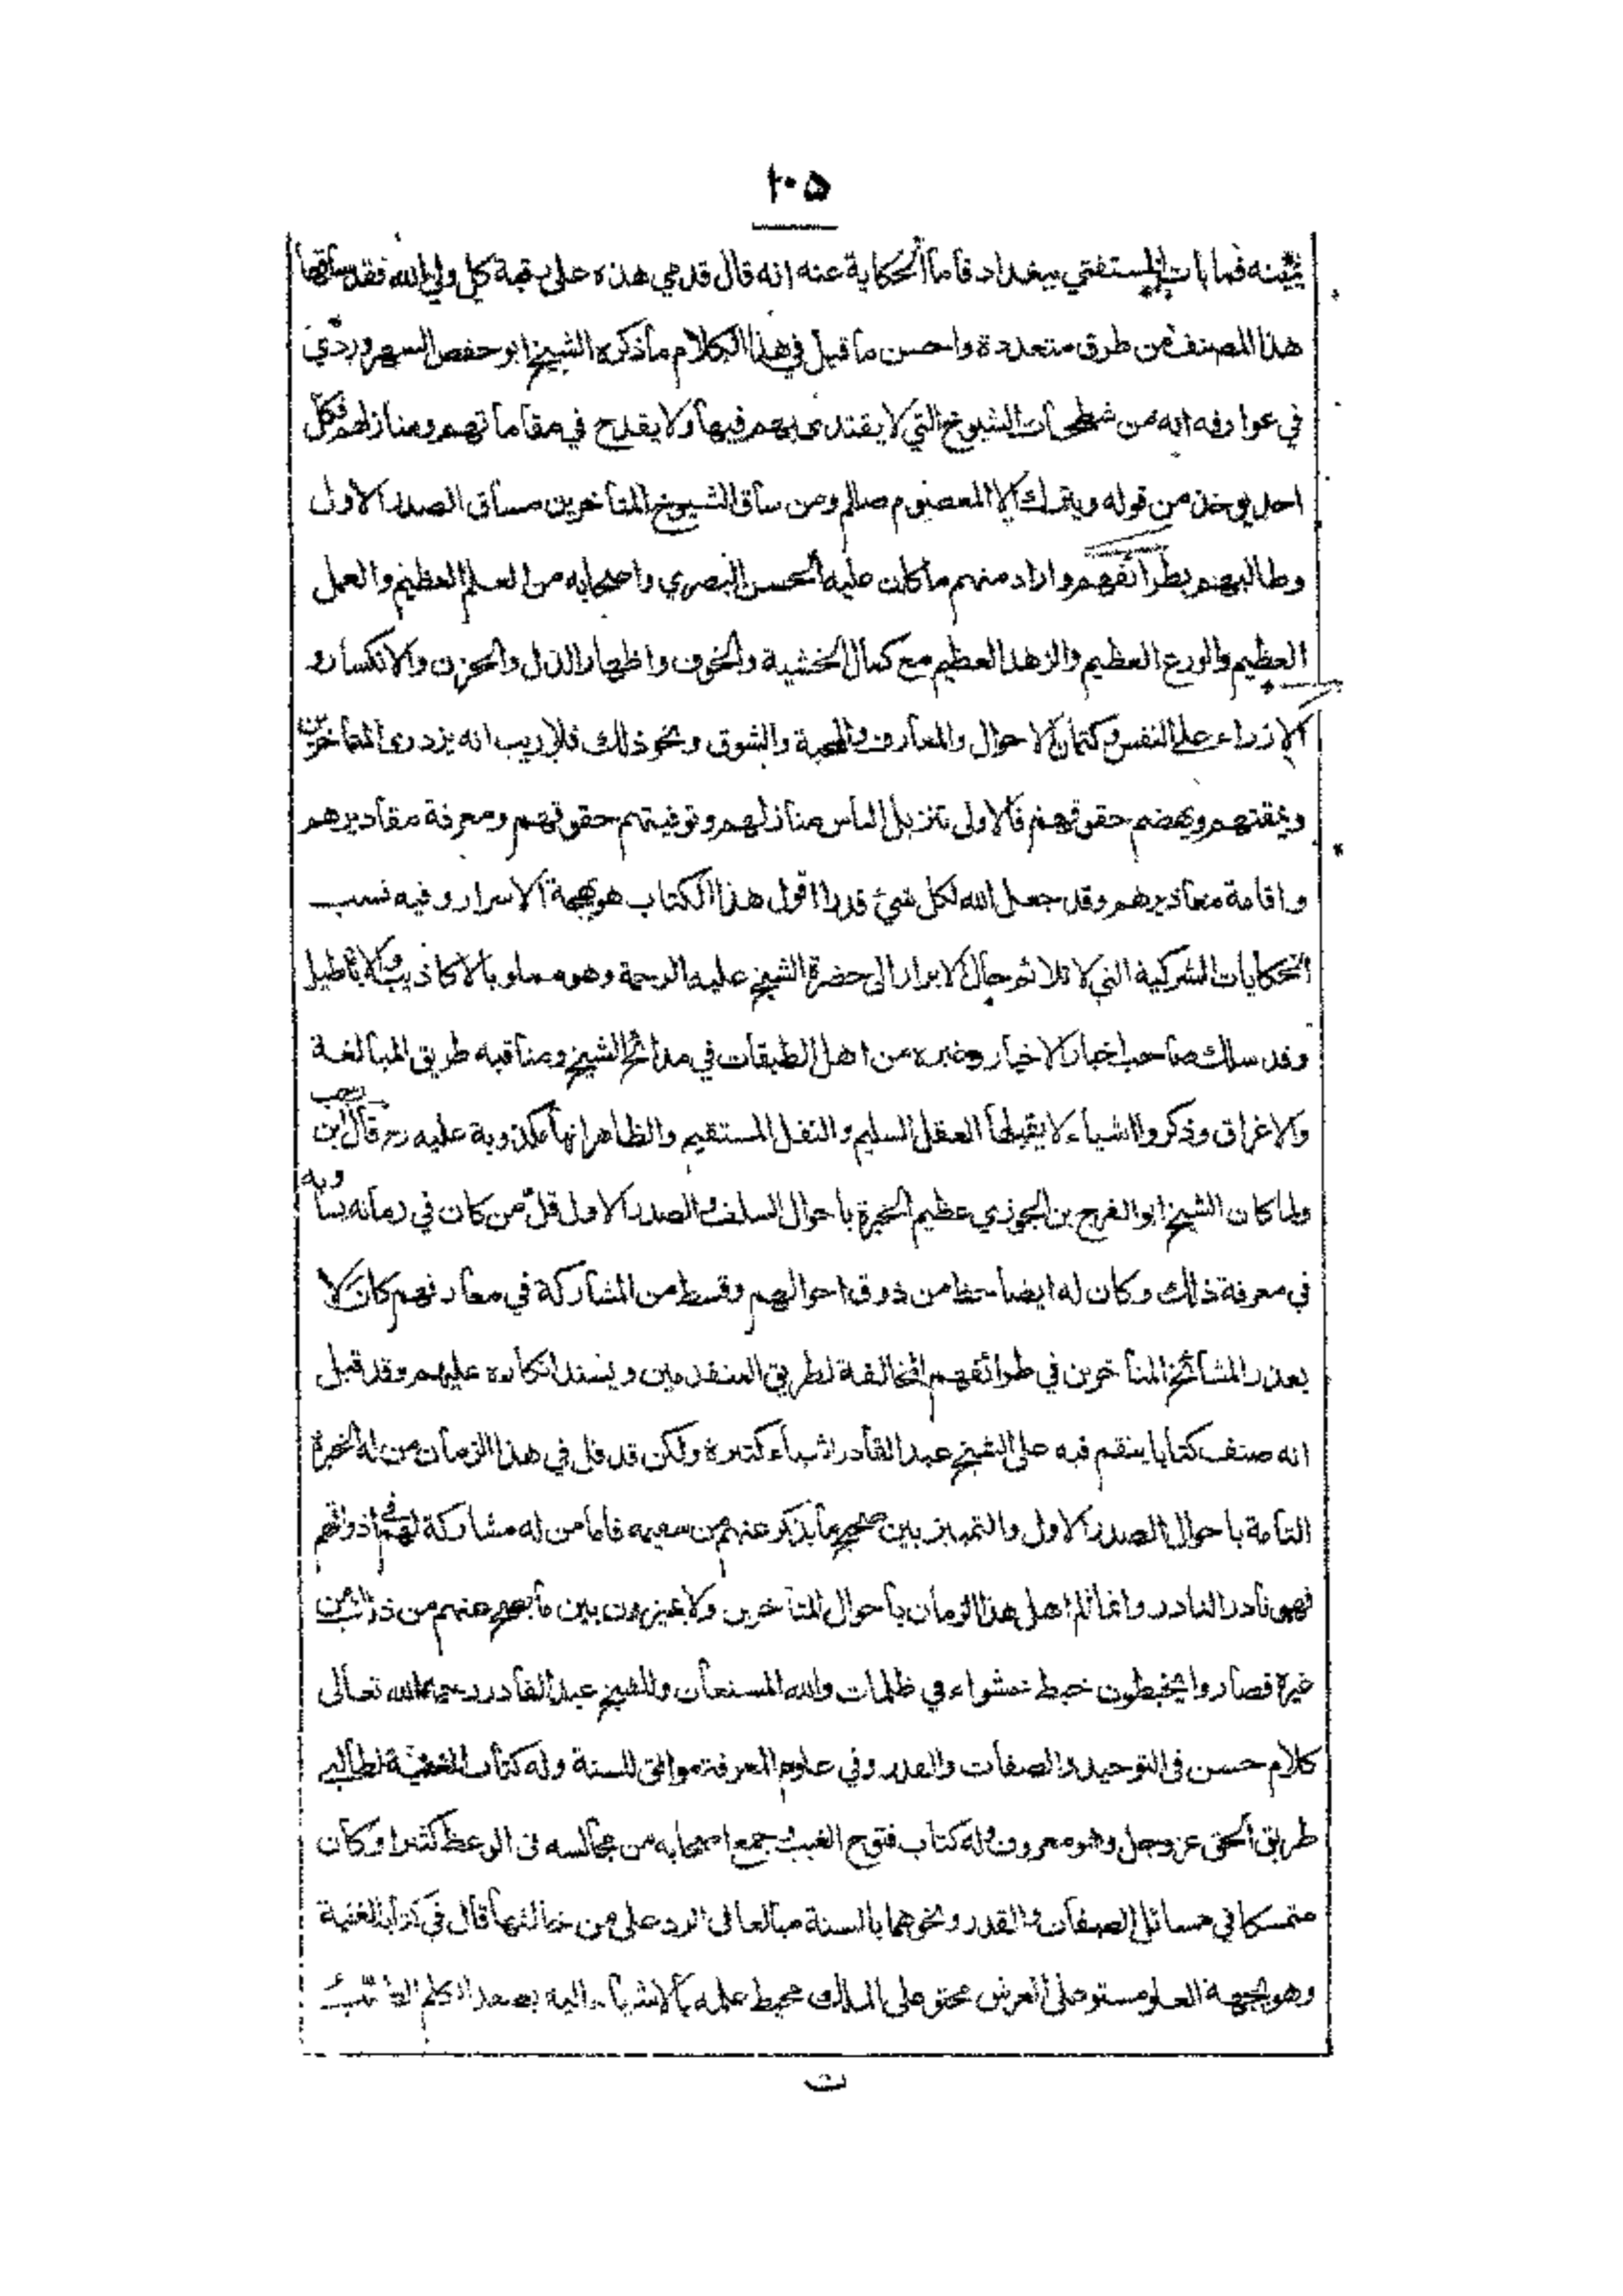 ١٠٥
يمينه فما بات المستفتي ببغداد فاما الحكاية عنه انه قال قدمي هذه على رقبة كل ولي الله فقد ساقها
هذا المصنف من طرق متعددة واحسن ما قيل في هذا الكلام ما ذكره الشيخ ابو حفص السهروردي
في عوارفه انه من شطحات الشيوخ التي لا يقتدى بهم فيها ولا يقدح في مقاماتهم ومنازلهم فكل
احد يوخذ من قوله ويترك الا المعصوم صللم ومن ساق الشيوخ المتأخرين مساق الصدر الاول
وطالبهم بطرائقهم واراد منهم ما كان عليه الحسن البصري واصحابه من العلم العظيم والعمل
العظيم والورع العظيم والزهد العظيم مع كمال الخشية والخوف واظهار الذل والحزن والانكسار و
الازراء على النفس وكتمان الاحوال والمعارف والمحبة والشوق ونحو ذلك فلا ريب انه يزدرى المتأخرين
ويمقتهم ويهضم حقوقهم فالاولى تنزيل الناس منازلهم وتوفيتهم حقوقهم ومعرفة مقاديرهم
واقامة معاذيرهم وقد جعل الله لكل شيئ قدرا اقول هذا الكتاب هو بهجة الاسرار وفيه نسب
الحكايات الشركية التي لا تلائم رجال الابرار الى حضرة الشيخ عليه الرحمة وهو مملو بالاكاذيب والاباطيل
وقد سلك صاحب اخبار الاخيار وغيره من اهل الطبقات في مدائح الشيخ ومناقبه طريق المبالغة
والاغراق وذكروا اشياء لا يقبلها العقل السليم والنقل المستقيم والظاهر انها مكذوبة عليه رح قال ابن رجب
ولما كان الشيخ ابو الفرج بن الجوزي عظيم الخبرة باحوال السلف والصدر الاول قلّ من كان في زمانه يساويه
في معرفة ذلك وكان له ايضا حظ من ذوق احوالهم وقسط من المشاركة في معارفهم كان لا
يعذر المشائخ المتأخرين في طرائقهم المخالفة لطريق المتقدمين ويشتد انكاره عليهم وقد قيل
انه صنف كتابا ينقم فيه على الشيخ عبد القادر اشياء كثيرة ولكن قد قل في هذا الزمان من له الخبرة
التامة باحوال الصدر الاول والتمييز بين صحيح ما يذكر عنهم من سقيمه فاما من له مشاركة لهم في اذواقهم
فهو نادر النادر وانما لهج اهل هذا الزمان بأحوال المتأخرين ولا يميزون بين ما يصح عنهم من ذلك من
غيره فصاروا يخبطون خبط عشواء في ظلمات والله المستعان وللشيخ عبد القادر رحمه الله تعالى
كلام حسن في التوحيد والصفات والقدر وفي علوم المعرفة موافق للسنة وله كتاب الغنية لطالبي
طريق الحق عز وجل وهو معروف وله كتاب فتوح الغيب وجمع اصحابه من مجالسه في الوعظ كثيرا وكان
متمسكا في مسائل الصفات والقدر ونحوهما بالسنة مبالغا في الرد على من خالفها قال في كتابه الغنية
وهو بجهة العلو مستو على العرش محتو على الملك محيط علمه بالاشياء اليه يصعد الكلم الطيب
ت